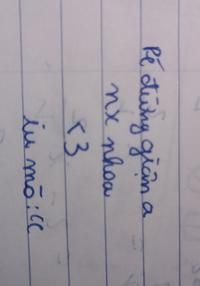 Pé đừng giận a
nx nhoa
<3
iu mò :((